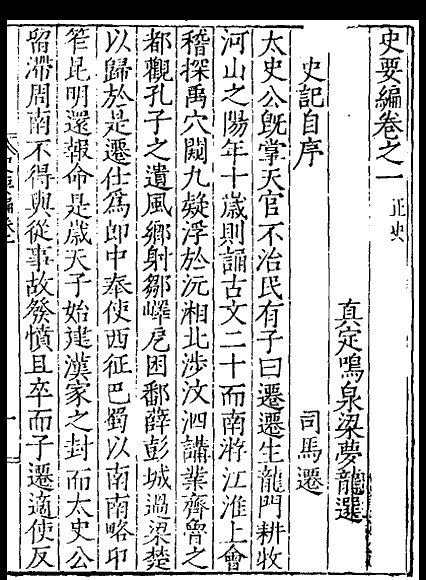 史要編卷之一
正史
真定鳴泉梁夢龍選
史記自序
司馬遷
太史公既掌天官不治民有子曰遷遷生龍門耕牧
河山之陽年十歲則誦古文二十而南游江淮上會
稽探禹穴闚九疑浮於沅湘北涉汶泗講業齊魯之
都觀孔子之遺風鄉射鄒嶧戹困鄱薛彭城過梁楚
以歸於是遷仕爲郎中奉使西征巴蜀以南南略卭
笮昆明還報命是歲天子始建漢家之封而太史公
留滯周南不得與從事故發憤且卒而子遷適使反